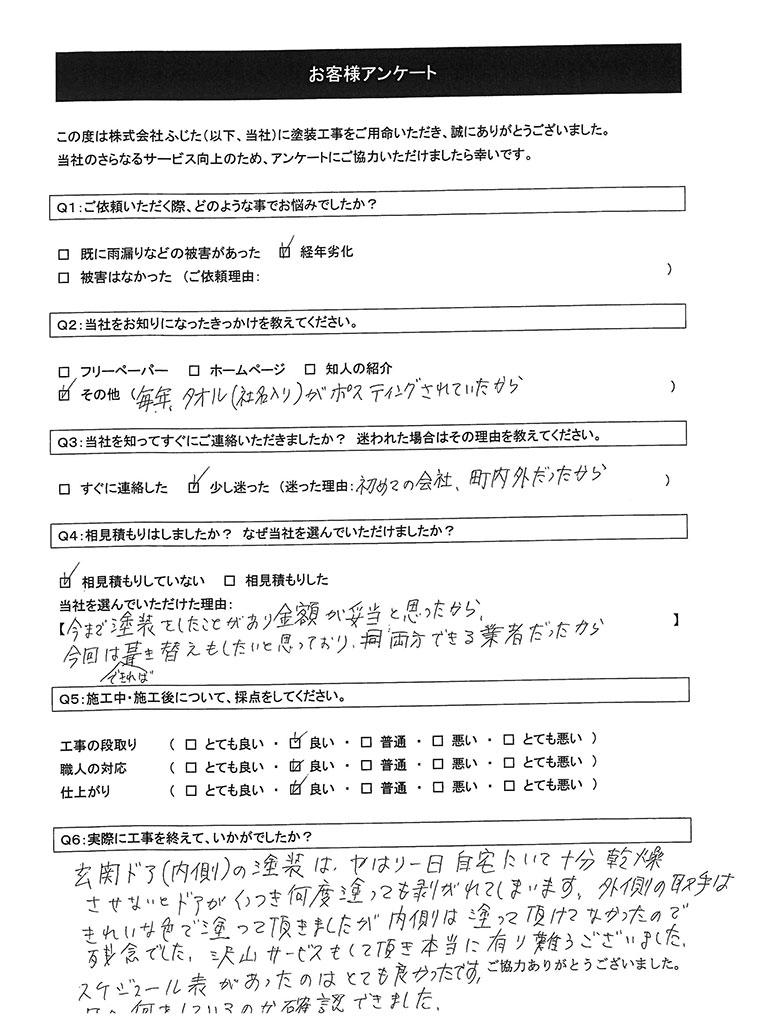 お客様アンケート
この度は株式会社ふじた(以下、当社)に塗装工事をご用命いただき、誠にありがとうございました。
当社のさらなるサービス向上のため、アンケートにご協力いただけましたら幸いです。
Q1:ご依頼いただく際、どのような事でお悩みでしたか?
□ 既に雨漏りなどの被害があった ☑ 経年劣化
□ 被害はなかった (ご依頼理由: )
Q2:当社をお知りになったきっかけを教えてください。
□ フリーペーパー □ ホームページ □ 知人の紹介
☑ その他 (毎年、タオル(社名入り)がポスティングされていたから )
Q3:当社を知ってすぐにご連絡いただきましたか? 迷われた場合はその理由を教えてください。
□ すぐに連絡した ☑ 少し迷った (迷った理由:初めての会社、町内外だったから )
Q4:相見積もりはしましたか? なぜ当社を選んでいただけましたか?
☑ 相見積もりしていない □ 相見積もりした
当社を選んでいただけた理由:
【今まで塗装をしたことがあり金額が妥当と思ったから、 】
今回は葺き替えもしたいと思っており、両方できる業者だったから
できれば
Q5:施工中・施工後について、採点をしてください。
工事の段取り ( □ とても良い ・ ☑ 良い ・ □ 普通 ・ □ 悪い ・ □ とても悪い )
職人の対応 ( □ とても良い ・ ☑ 良い ・ □ 普通 ・ □ 悪い ・ □ とても悪い )
仕上がり ( □ とても良い ・ ☑ 良い ・ □ 普通 ・ □ 悪い ・ □ とても悪い )
Q6:実際に工事を終えて、いかがでしたか?
玄関ドア(内側)の塗装は、やはり一日自宅にいて十分乾燥
させないとドアがくっつき何度塗っても剥がれてしまいます。外側の取手は
きれいな色で塗って頂きましたが内側は塗って頂けてなかったので
残念でした。沢山サービスもして頂き本当に有り難うございました。
スケジュール表があったのはとても良かったです。ご協力ありがとうございました。
何をしているのか確認できました。